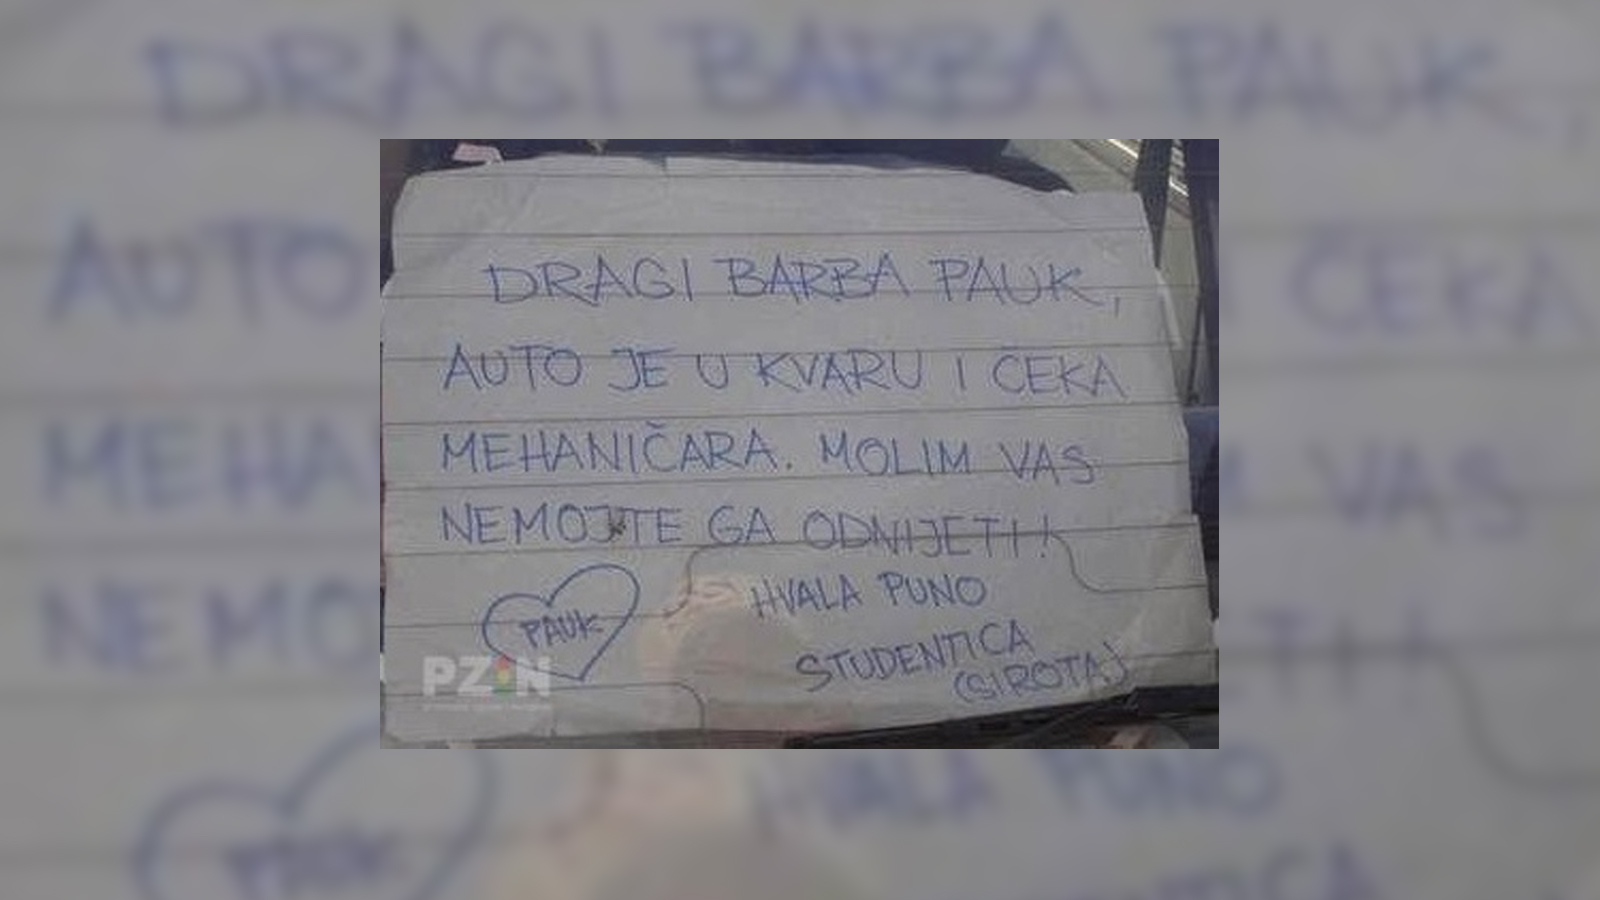 DRAGI BARBA PAUK,
AUTO JE U KVARU I ČEKA
MEHANIČARA. MOLIM VAS
NEMOJTE GA ODNIJETI!
HVALA PUNO
PAUK
STUDENTICA
(SIROTA)
PZIN